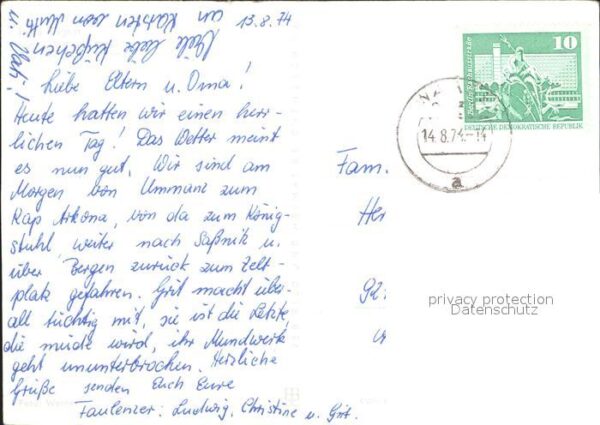 13.8.74
Viele liebe Küßchen
an Karsten von Mutti
u. Vati!
Liebe Eltern u. Oma!
Heute hatten wir einen herr-
lichen Tag! Das Wetter meint
es nun gut. Wir sind am
Morgen von Ummanz zum
Kap Arkona, von da zum König-
stuhl, weiter nach Saßnik u.
über Bergen zurück zum Zelt-
platz gefahren. Grit macht über-
all tüchtig mit, sie ist die Letzte,
die müde wird, ihr Mundwerk
geht ununterbrochen. Herzliche
Grüße senden Euch Eure
Faulenzer: Ludwig, Christine u. Grit.
10
Berlin Rathausstraße
DEUTSCHE DEMOKRATISCHE REPUBLIK
14.8.74-14
a
Fam.
Her
92
privacy protection
Datenschutz